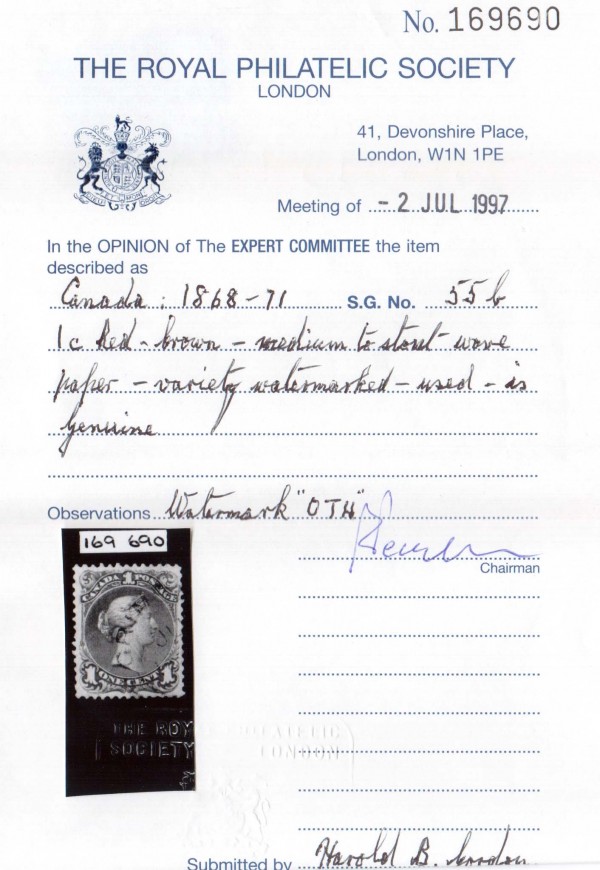 No. 169690
THE ROYAL PHILATELIC SOCIETY
LONDON
41, Devonshire Place,
London, W1N 1PE
Meeting of - 2 JUL 1997
In the OPINION of The EXPERT COMMITTEE the item
described as
Canada : 1868-71 S.G. No. 55b
1c Red-brown - medium to stout wove
paper - variety watermarked - used - is
genuine
Observations Watermark "OTH"
Chairman
169 690
CANADA POSTAGE
1
1 ONE CENT 1
THE ROYAL PHILATELIC
SOCIETY LONDON
Submitted by Harold B.